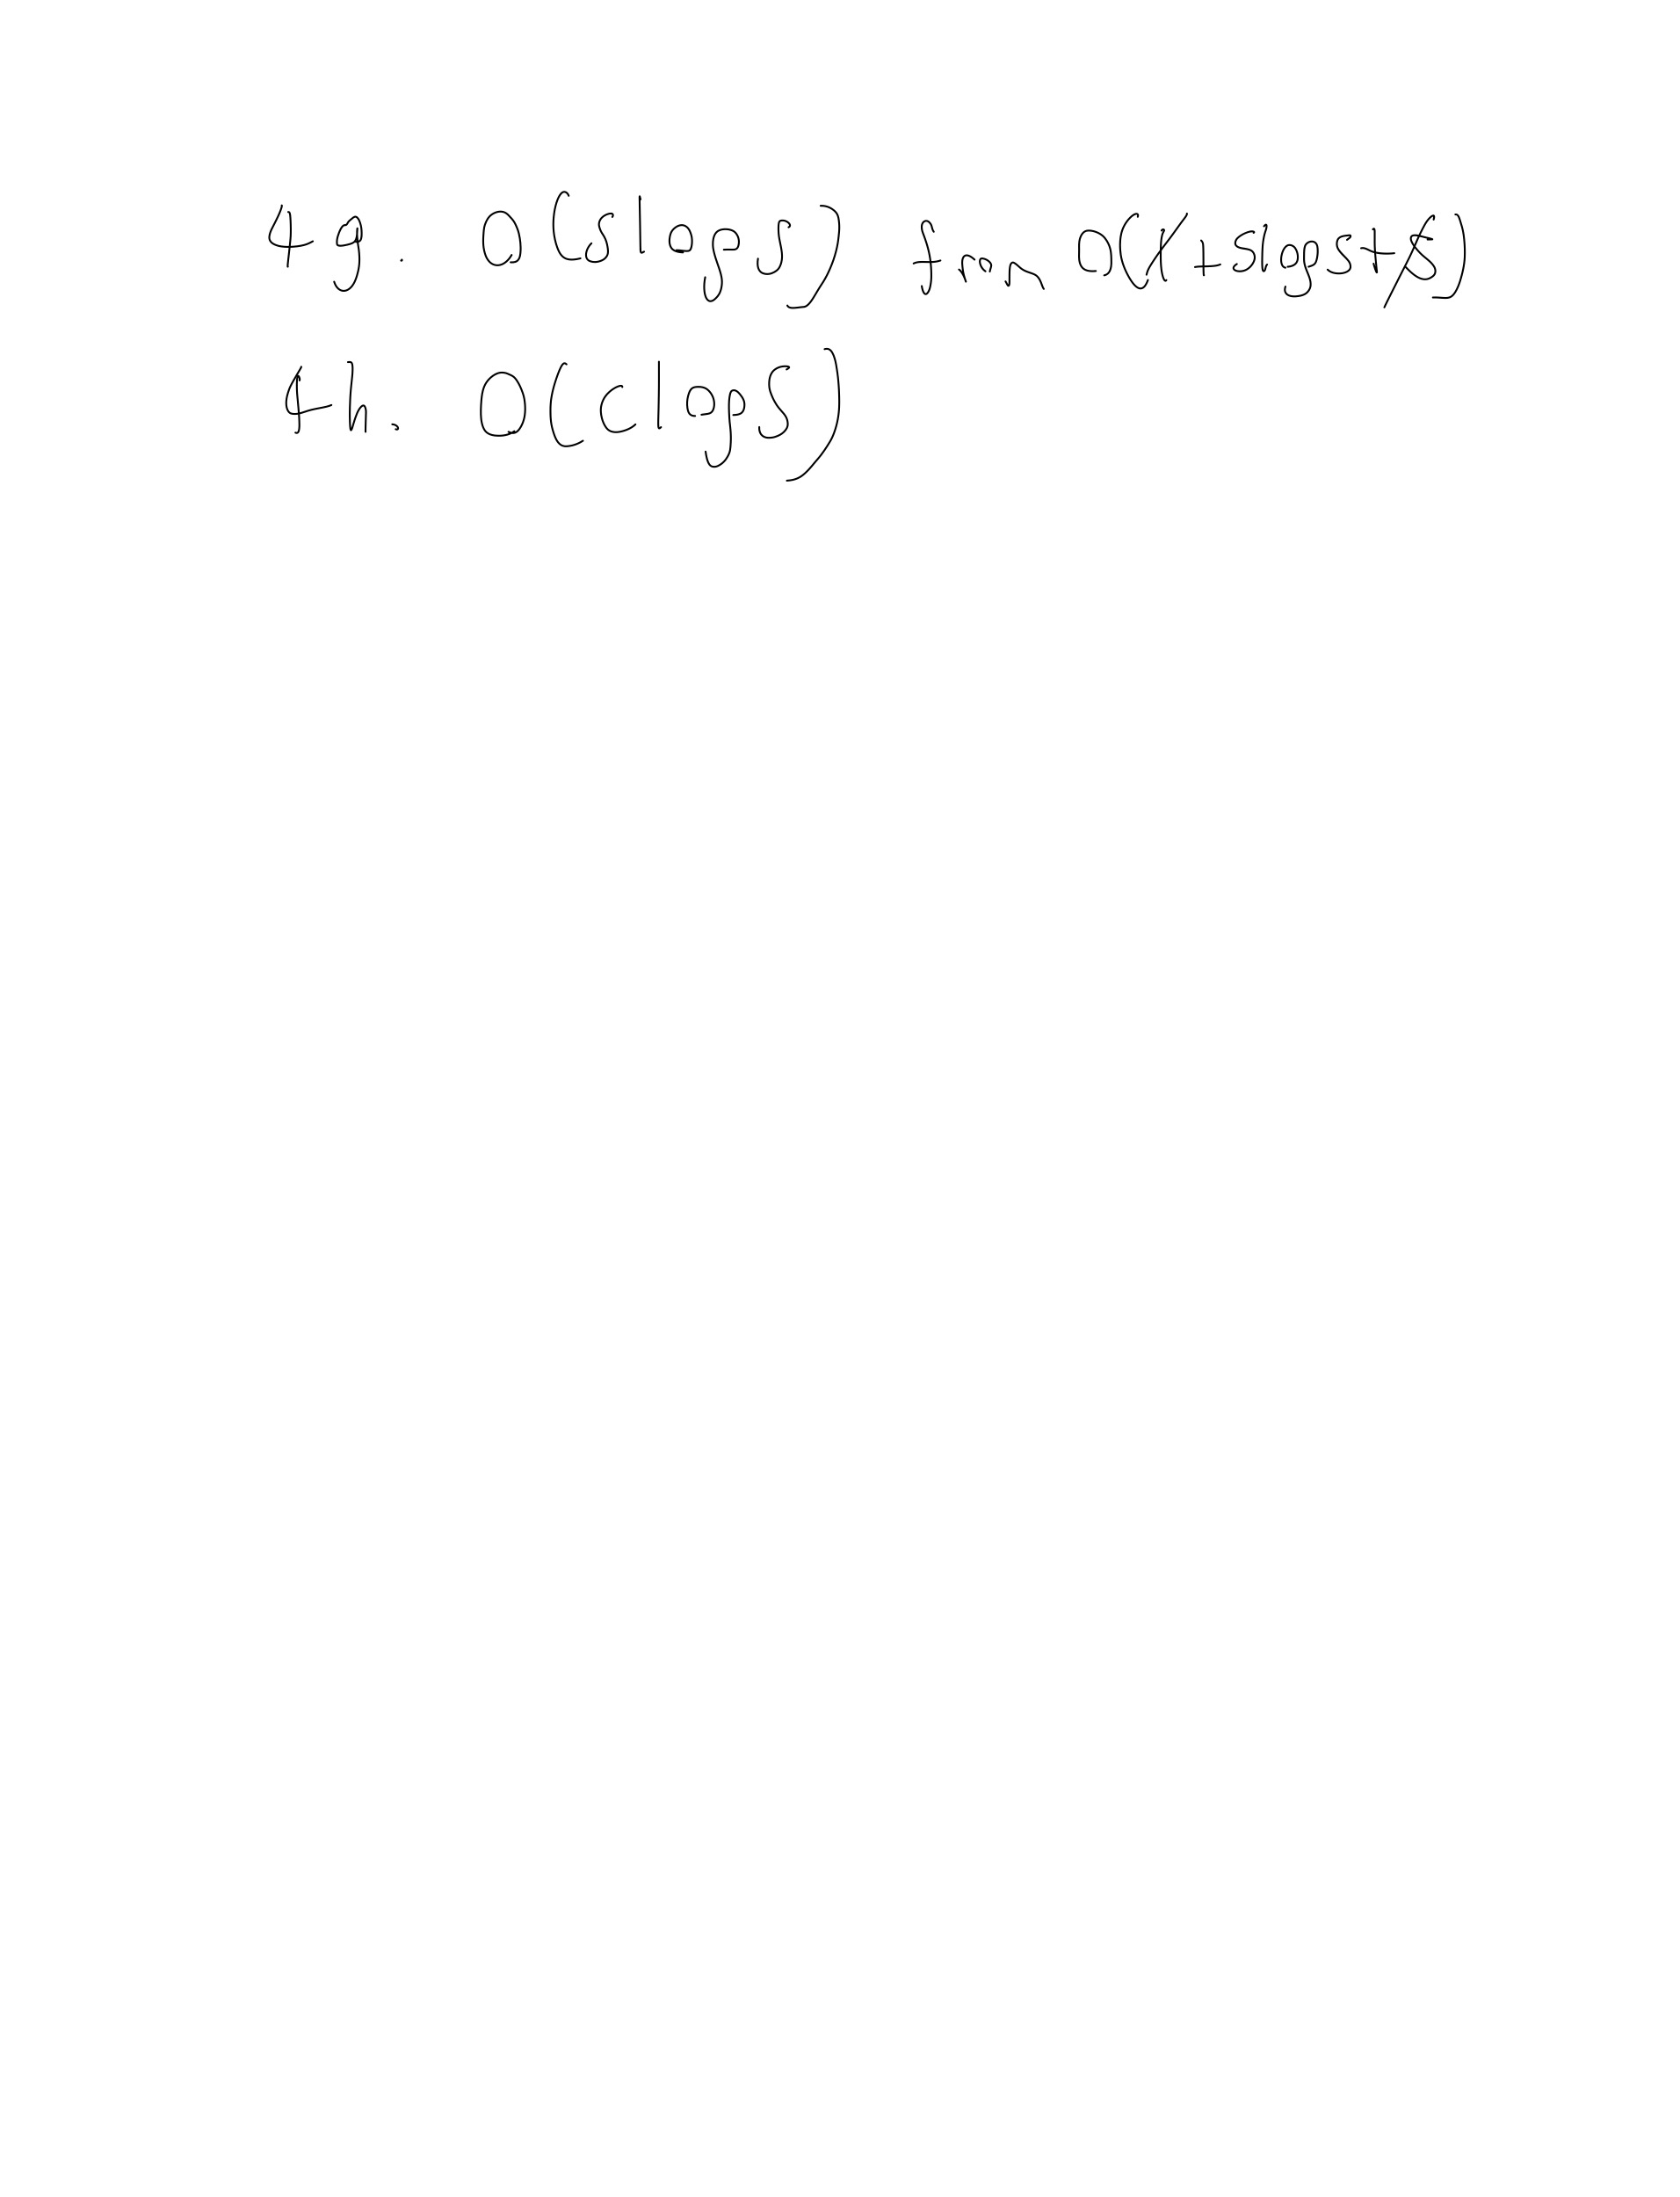 4g. O(slogs) from O(1+slogs+s)
4h. O(clogs)